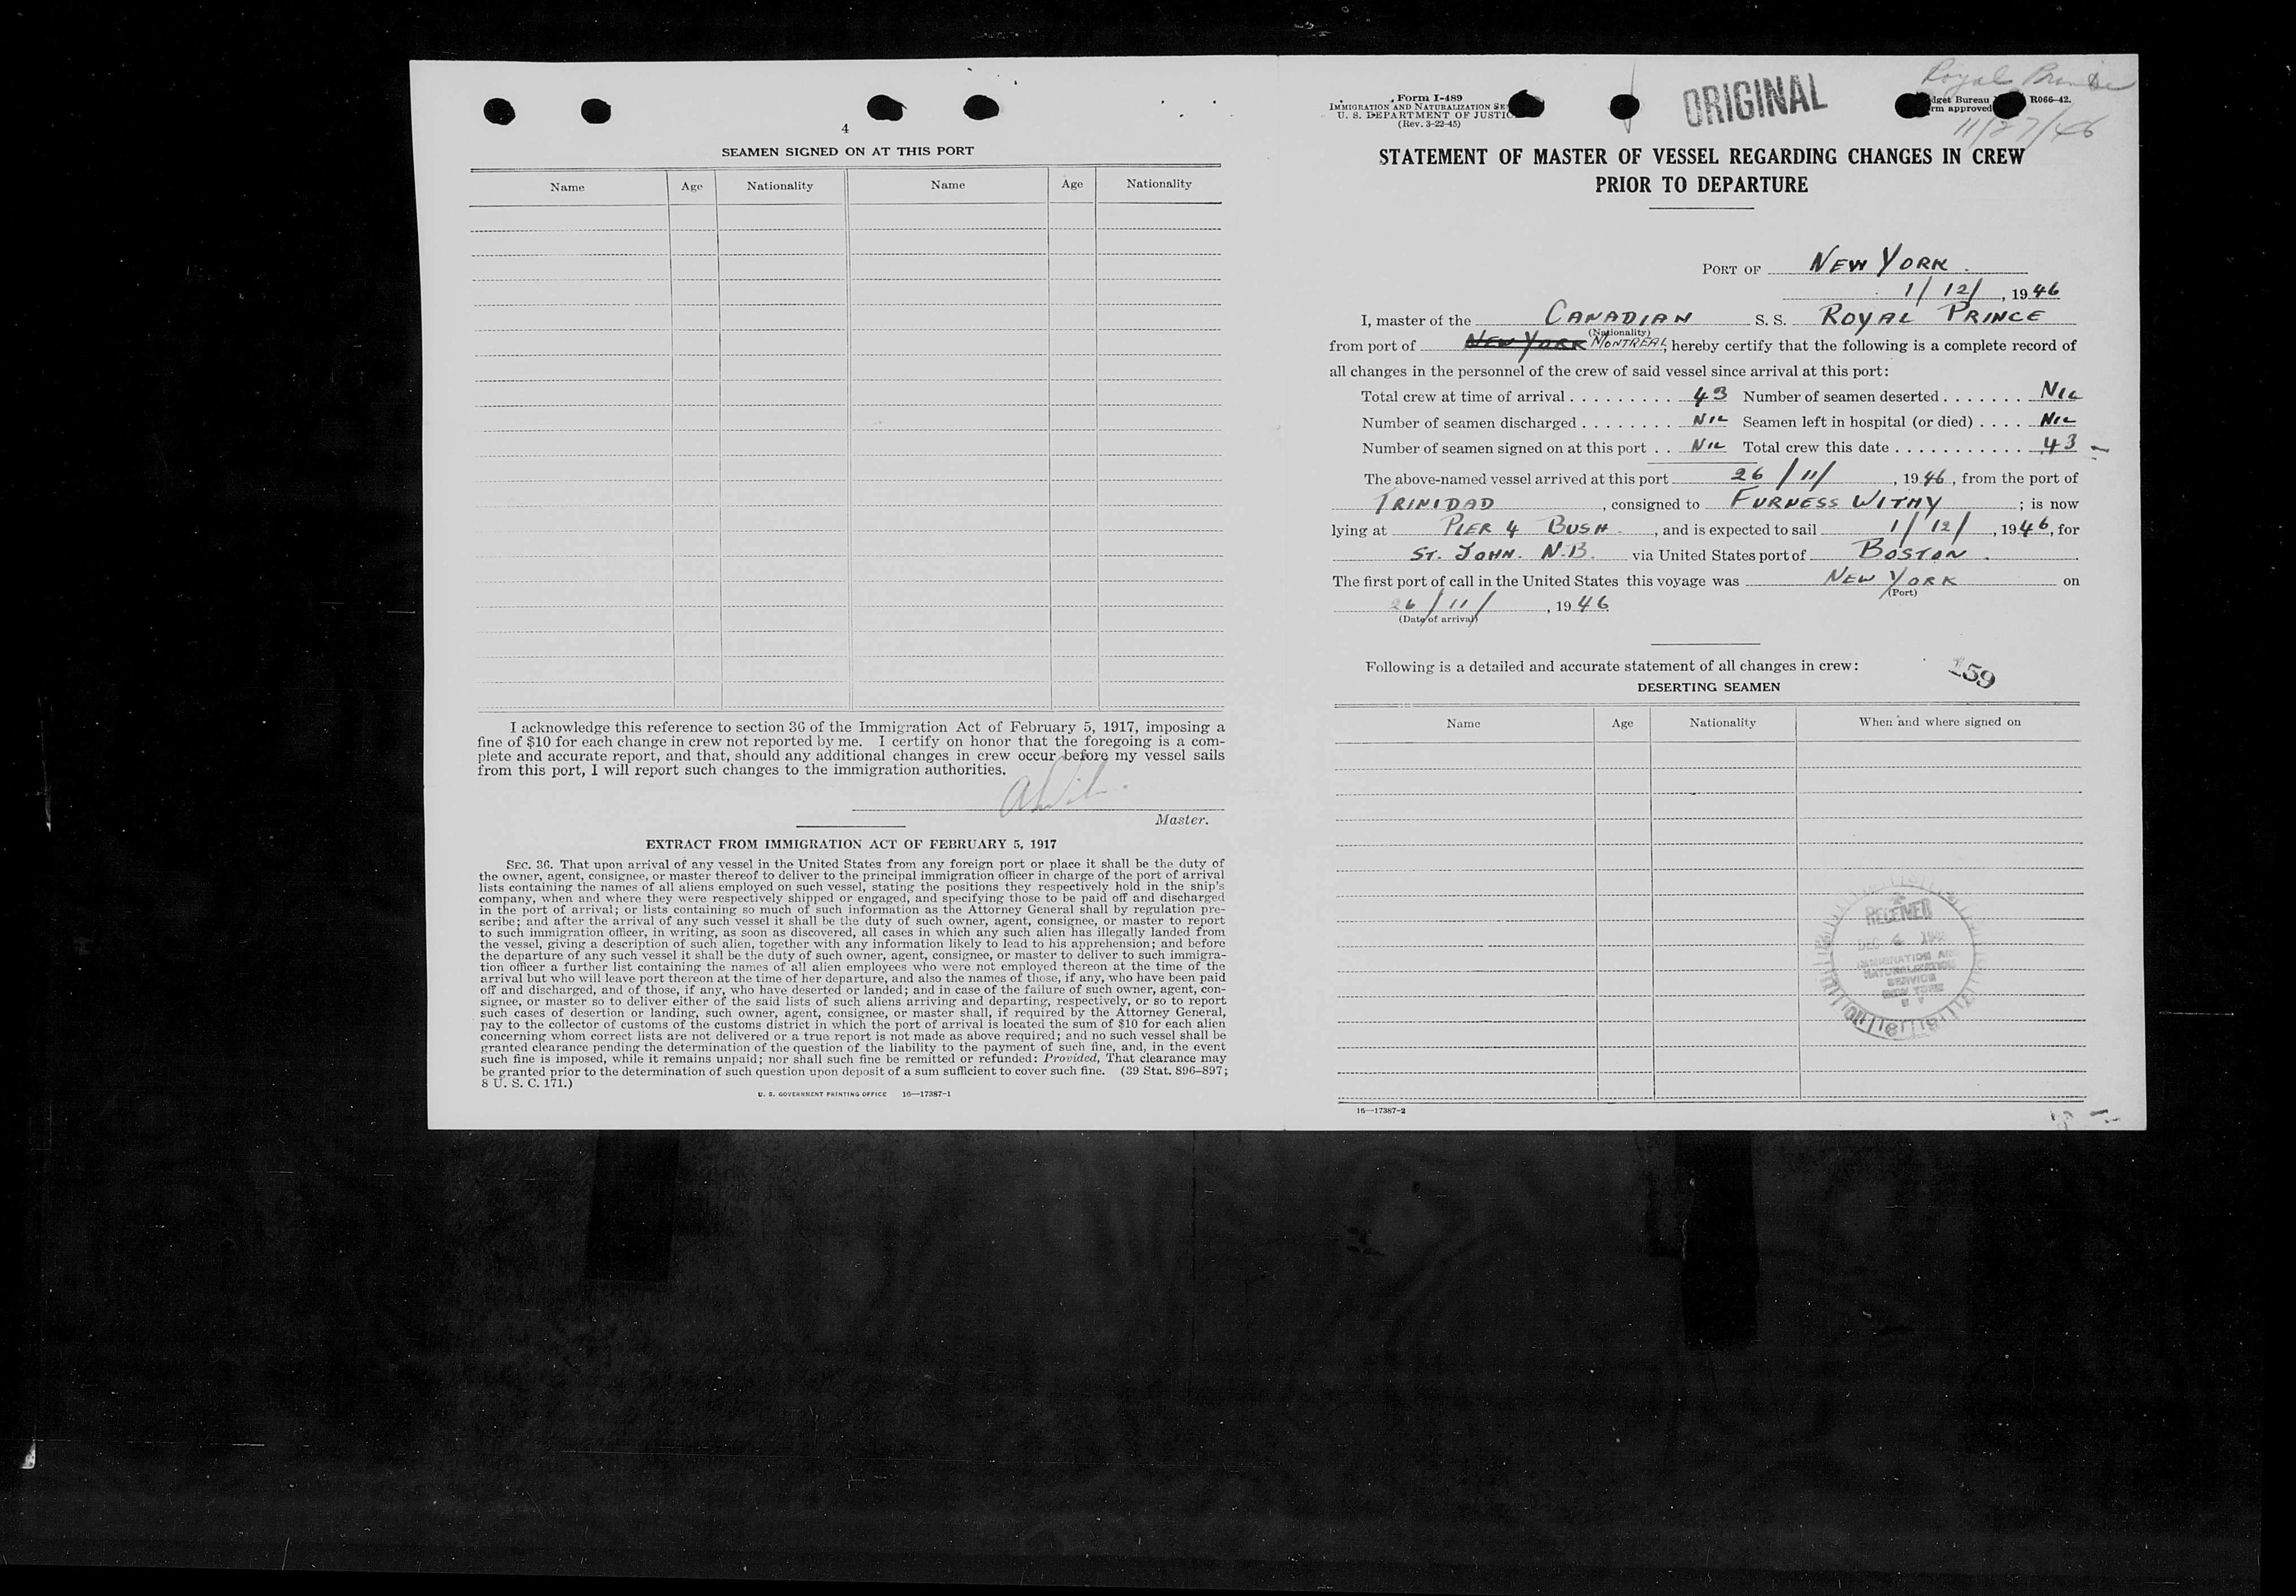 4
SEAMEN SIGNED ON AT THIS PORT
Name Age Nationality Name Age Nationality
I acknowledge this reference to section 36 of the Immigration Act of February 5, 1917, imposing a
fine of $10 for each change in crew not reported by me. I certify on honor that the foregoing is a com-
plete and accurate report, and that, should any additional changes in crew occur before my vessel sails
from this port, I will report such changes to the immigration authorities.
Master.
EXTRACT FROM IMMIGRATION ACT OF FEBRUARY 5, 1917
SEC. 36. That upon arrival of any vessel in the United States from any foreign port or place it shall be the duty of
the owner, agent, consignee, or master thereof to deliver to the principal immigration officer in charge of the port of arrival
lists containing the names of all aliens employed on such vessel, stating the positions they respectively hold in the ship's
company, when and where they were respectively shipped or engaged, and specifying those to be paid off and discharged
in the port of arrival; or lists containing so much of such information as the Attorney General shall by regulation pre-
scribe; and after the arrival of any such vessel it shall be the duty of such owner, agent, consignee, or master to report
to such immigration officer, in writing, as soon as discovered, all cases in which any such alien has illegally landed from
the vessel, giving a description of such alien, together with any information likely to lead to his apprehension; and before
the departure of any such vessel it shall be the duty of such owner, agent, consignee, or master to deliver to such immigra-
tion officer a further list containing the names of all alien employees who were not employed thereon at the time of the
arrival but who will leave port thereon at the time of her departure, and also the names of those, if any, who have been paid
off and discharged, and of those, if any, who have deserted or landed; and in case of the failure of such owner, agent, con-
signee, or master so to deliver either of the said lists of such aliens arriving and departing, respectively, or so to report
such cases of desertion or landing, such owner, agent, consignee, or master shall, if required by the Attorney General,
pay to the collector of customs of the customs district in which the port of arrival is located the sum of $10 for each alien
concerning whom correct lists are not delivered or a true report is not made as above required; and no such vessel shall be
granted clearance pending the determination of the question of the liability to the payment of such fine, and, in the event
such fine is imposed, while it remains unpaid; nor shall such fine be remitted or refunded: Provided, That clearance may
be granted prior to the determination of such question upon deposit of a sum sufficient to cover such fine. (39 Stat. 896–897;
8 U. S. C. 171.)
U. S. GOVERNMENT PRINTING OFFICE 16—17387-1
Royal Prince
Form I-489
IMMIGRATION AND NATURALIZATION SE
U. S. DEPARTMENT OF JUSTIC
(Rev. 3-22-45)
ORIGINAL
dget Bureau R066-42.
rm approved
11/27/46
STATEMENT OF MASTER OF VESSEL REGARDING CHANGES IN CREW
PRIOR TO DEPARTURE
PORT OF NEW YORK.
1/12/, 1946
I, master of the CANADIAN S. S. ROYAL PRINCE
(Nationality)
from port of NEW YORK MONTREAL, hereby certify that the following is a complete record of
all changes in the personnel of the crew of said vessel since arrival at this port:
Total crew at time of arrival . . . . . . . . . 43 Number of seamen deserted . . . . . . . NIL
Number of seamen discharged . . . . . . . . NIL Seamen left in hospital (or died) . . . . NIL
Number of seamen signed on at this port . . NIL Total crew this date . . . . . . . . . . . . 43
The above-named vessel arrived at this port 26/11/, 1946, from the port of
TRINIDAD, consigned to FURNESS WITHY; is now
lying at PIER 4 BUSH., and is expected to sail 1/12/, 1946, for
ST. JOHN. N.B. via United States port of BOSTON.
The first port of call in the United States this voyage was NEW YORK on
(Port)
26/11/, 1946
(Date of arrival)
Following is a detailed and accurate statement of all changes in crew:
159
DESERTING SEAMEN
Name Age Nationality When and where signed on
RECEIVED
DEC 4 1946
IMMIGRATION AND
NATURALIZATION
SERVICE
NEW YORK
N Y
16—17387-2